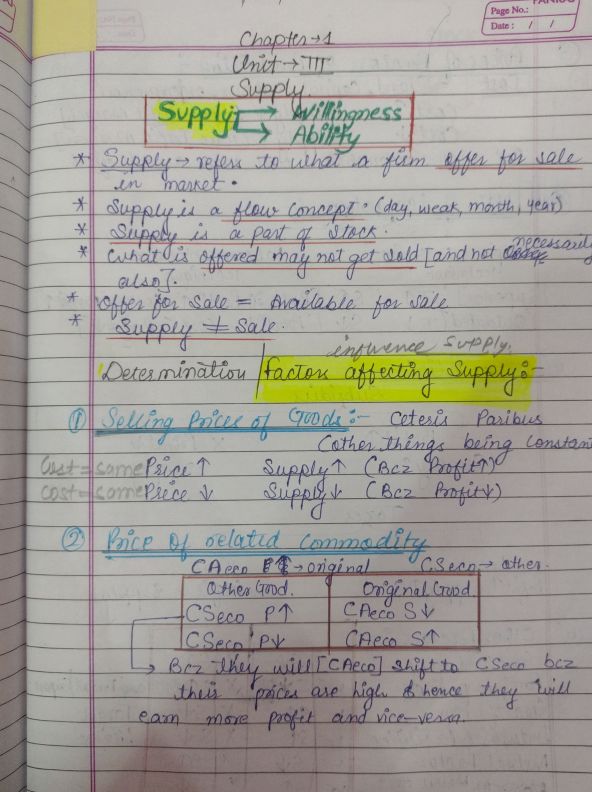 Page No.:
Date: / /
Chapter → 1
Unit → III
Supply.
Supply → Willingness
→ Ability
* Supply → refers to what a firm offer for sale
in market.
* Supply is a flow concept. (day, weak, month, year)
* Supply is a part of Stock.
* What is offered may not get sold [and not necessarily
also].
* offer for Sale = Available for sale
* Supply ≠ Sale.
influence supply.
Determination / factors affecting Supply:-
① Selling Prices of Goods:- Ceteris Paribus
(other things being constan
Cost = same Price ↑ Supply ↑ (Bcz Profit ↑)
Cost = same Price ↓ Supply ↓ (Bcz Profit ↓)
② Price of related Commodity
CAeco → original CSeco → other.
Other Good. Original Good
CSeco P↑ CAeco S↓
CSeco P↓ CAeco S↑
→ Bcz they will [CAeco] shift to CSeco bcz
their prices are high & hence they will
earn more profit and vice-versa.